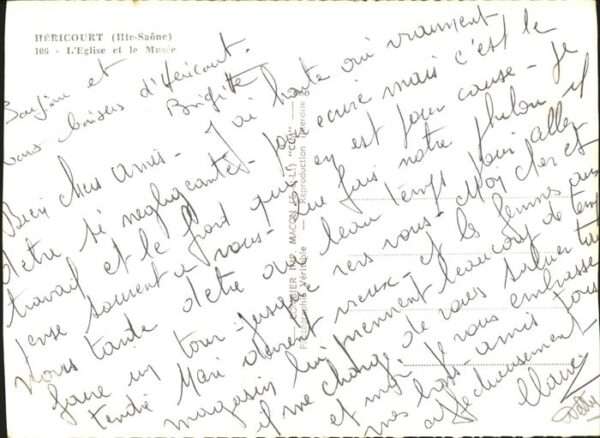 HÉRICOURT (Hte-Saône)
106 - L'Eglise et le Musée
Bonjour et
bons baisers d'Héricourt.
Brigitte
Bien chers amis - J'ai honte oui vraiment
d'être si négligeante - pour écrire mais c'est le
travail et le froid qui en est pour cause - Je
pense souvent à vous - que fait notre il
nous tarde d'être au beau temps pour aller
faire un tour jusque vers vous - Mon cher et
tendre Mari devient vieux - et les femmes au
magasin lui prennent beaucoup de temps
il me charge de vous saluer tous
et moi je vous embrasse
mes bons amis tous
affectueusement
Claire
COMBIER IMP. MACON (S.-&-L.) "CIM"
Photographie Véritable - Reproduction interdite